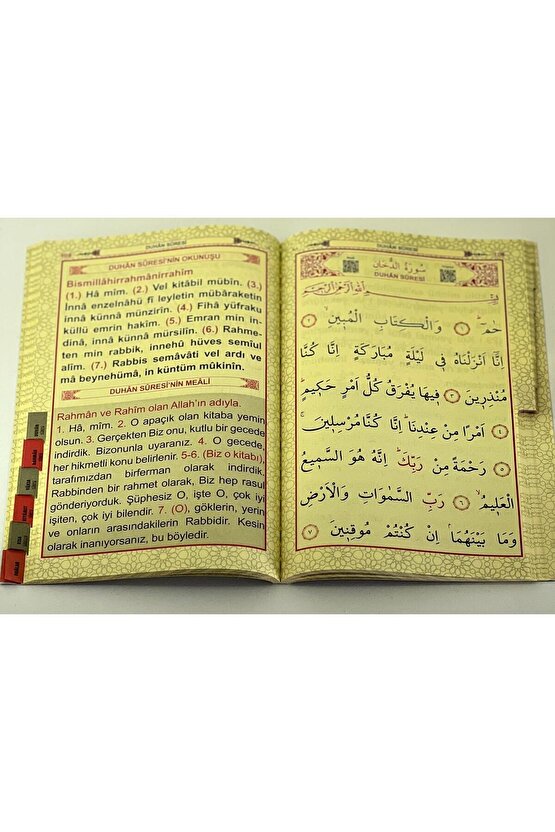 DUHÂN SÛRESİ
DUHÂN SÛRESİ'NİN OKUNUŞU
Bismillâhirrahmânirrahîm
(1.) Hâ mîm. (2.) Vel kitâbil mübîn. (3.)
İnnâ enzelnâhü fî leyletin mübâraketin
innâ künnâ münzirîn. (4.) Fîhâ yüfraku
küllü emrin hakîm. (5.) Emran min in-
dinâ, innâ künnâ mürsilîn. (6.) Rahme-
ten min rabbik, innehû hüves semîul
alîm. (7.) Rabbis semâvâti vel ardı ve
mâ beynehümâ, in küntüm mûkınîn.
DUHÂN SÛRESİ'NİN MEÂLİ
Rahmân ve Rahîm olan Allah'ın adıyla.
1. Hâ, mîm. 2. O apaçık olan kitaba yemin
olsun. 3. Gerçekten Biz onu, kutlu bir gecede
indirdik. Bizonunla uyaranız. 4. O gecede,
her hikmetli konu belirlenir. 5-6. (Biz o kitabı),
tarafımızdan birferman olarak indirdik.
Rabbinden bir rahmet olarak, Biz hep rasul
gönderiyorduk. Şüphesiz O, işte O, çok iyi
işiten, çok iyi bilendir. 7. (O), göklerin, yerin
ve onların arasındakilerin Rabbidir. Kesin
olarak inanıyorsanız, bu böyledir.
DUHÂN SÛRESİ
سُورَةُ الدُّخَانِ
DUHÂN SÛRESİ
بِسْمِ اللهِ الرَّحْمٰنِ الرَّحِيمِ
حٰمٓ ۚ ١ وَالْكِتَابِ الْمُبِينِ ۙ ٢
اِنَّٓا اَنْزَلْنَاهُ فِي لَيْلَةٍ مُبَارَكَةٍ اِنَّا كُنَّا
مُنْذِرِينَ ٣ فِيهَا يُفْرَقُ كُلُّ اَمْرٍ حَكِيمٍ ۙ
٤ اَمْرًا مِنْ عِنْدِنَا ۜ اِنَّا كُنَّا مُرْسِلِينَ ۚ
٥ رَحْمَةً مِنْ رَبِّكَ ۜ اِنَّهُ هُوَ السَّمِيعُ
الْعَلِيمُ ۙ ٦ رَبِّ السَّمٰوَاتِ وَالْاَرْضِ
وَمَا بَيْنَهُمَا ۢ اِنْ كُنْتُمْ مُوقِنِينَ ٧